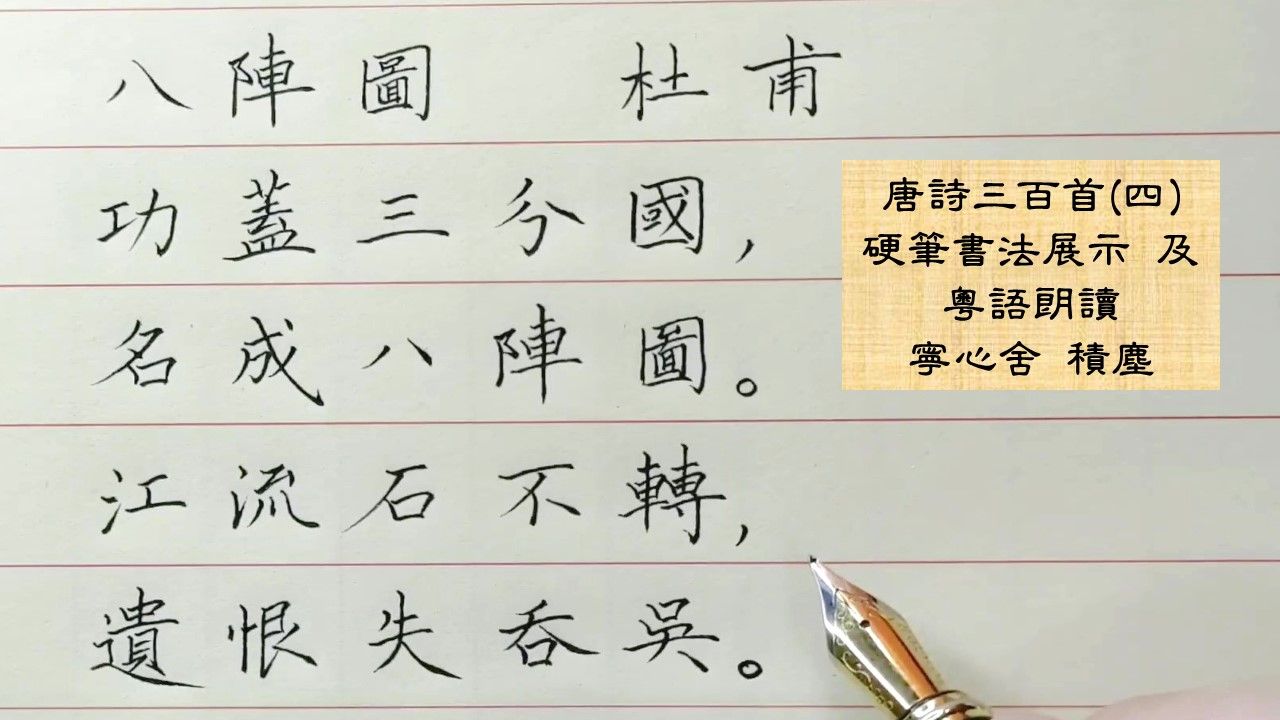 八陣圖 杜甫
功蓋三分國,
名成八陣圖。
江流石不轉,
遺恨失吞吳。
唐詩三百首(四)
硬筆書法展示 及
粵語朗讀
寧心舍 積塵